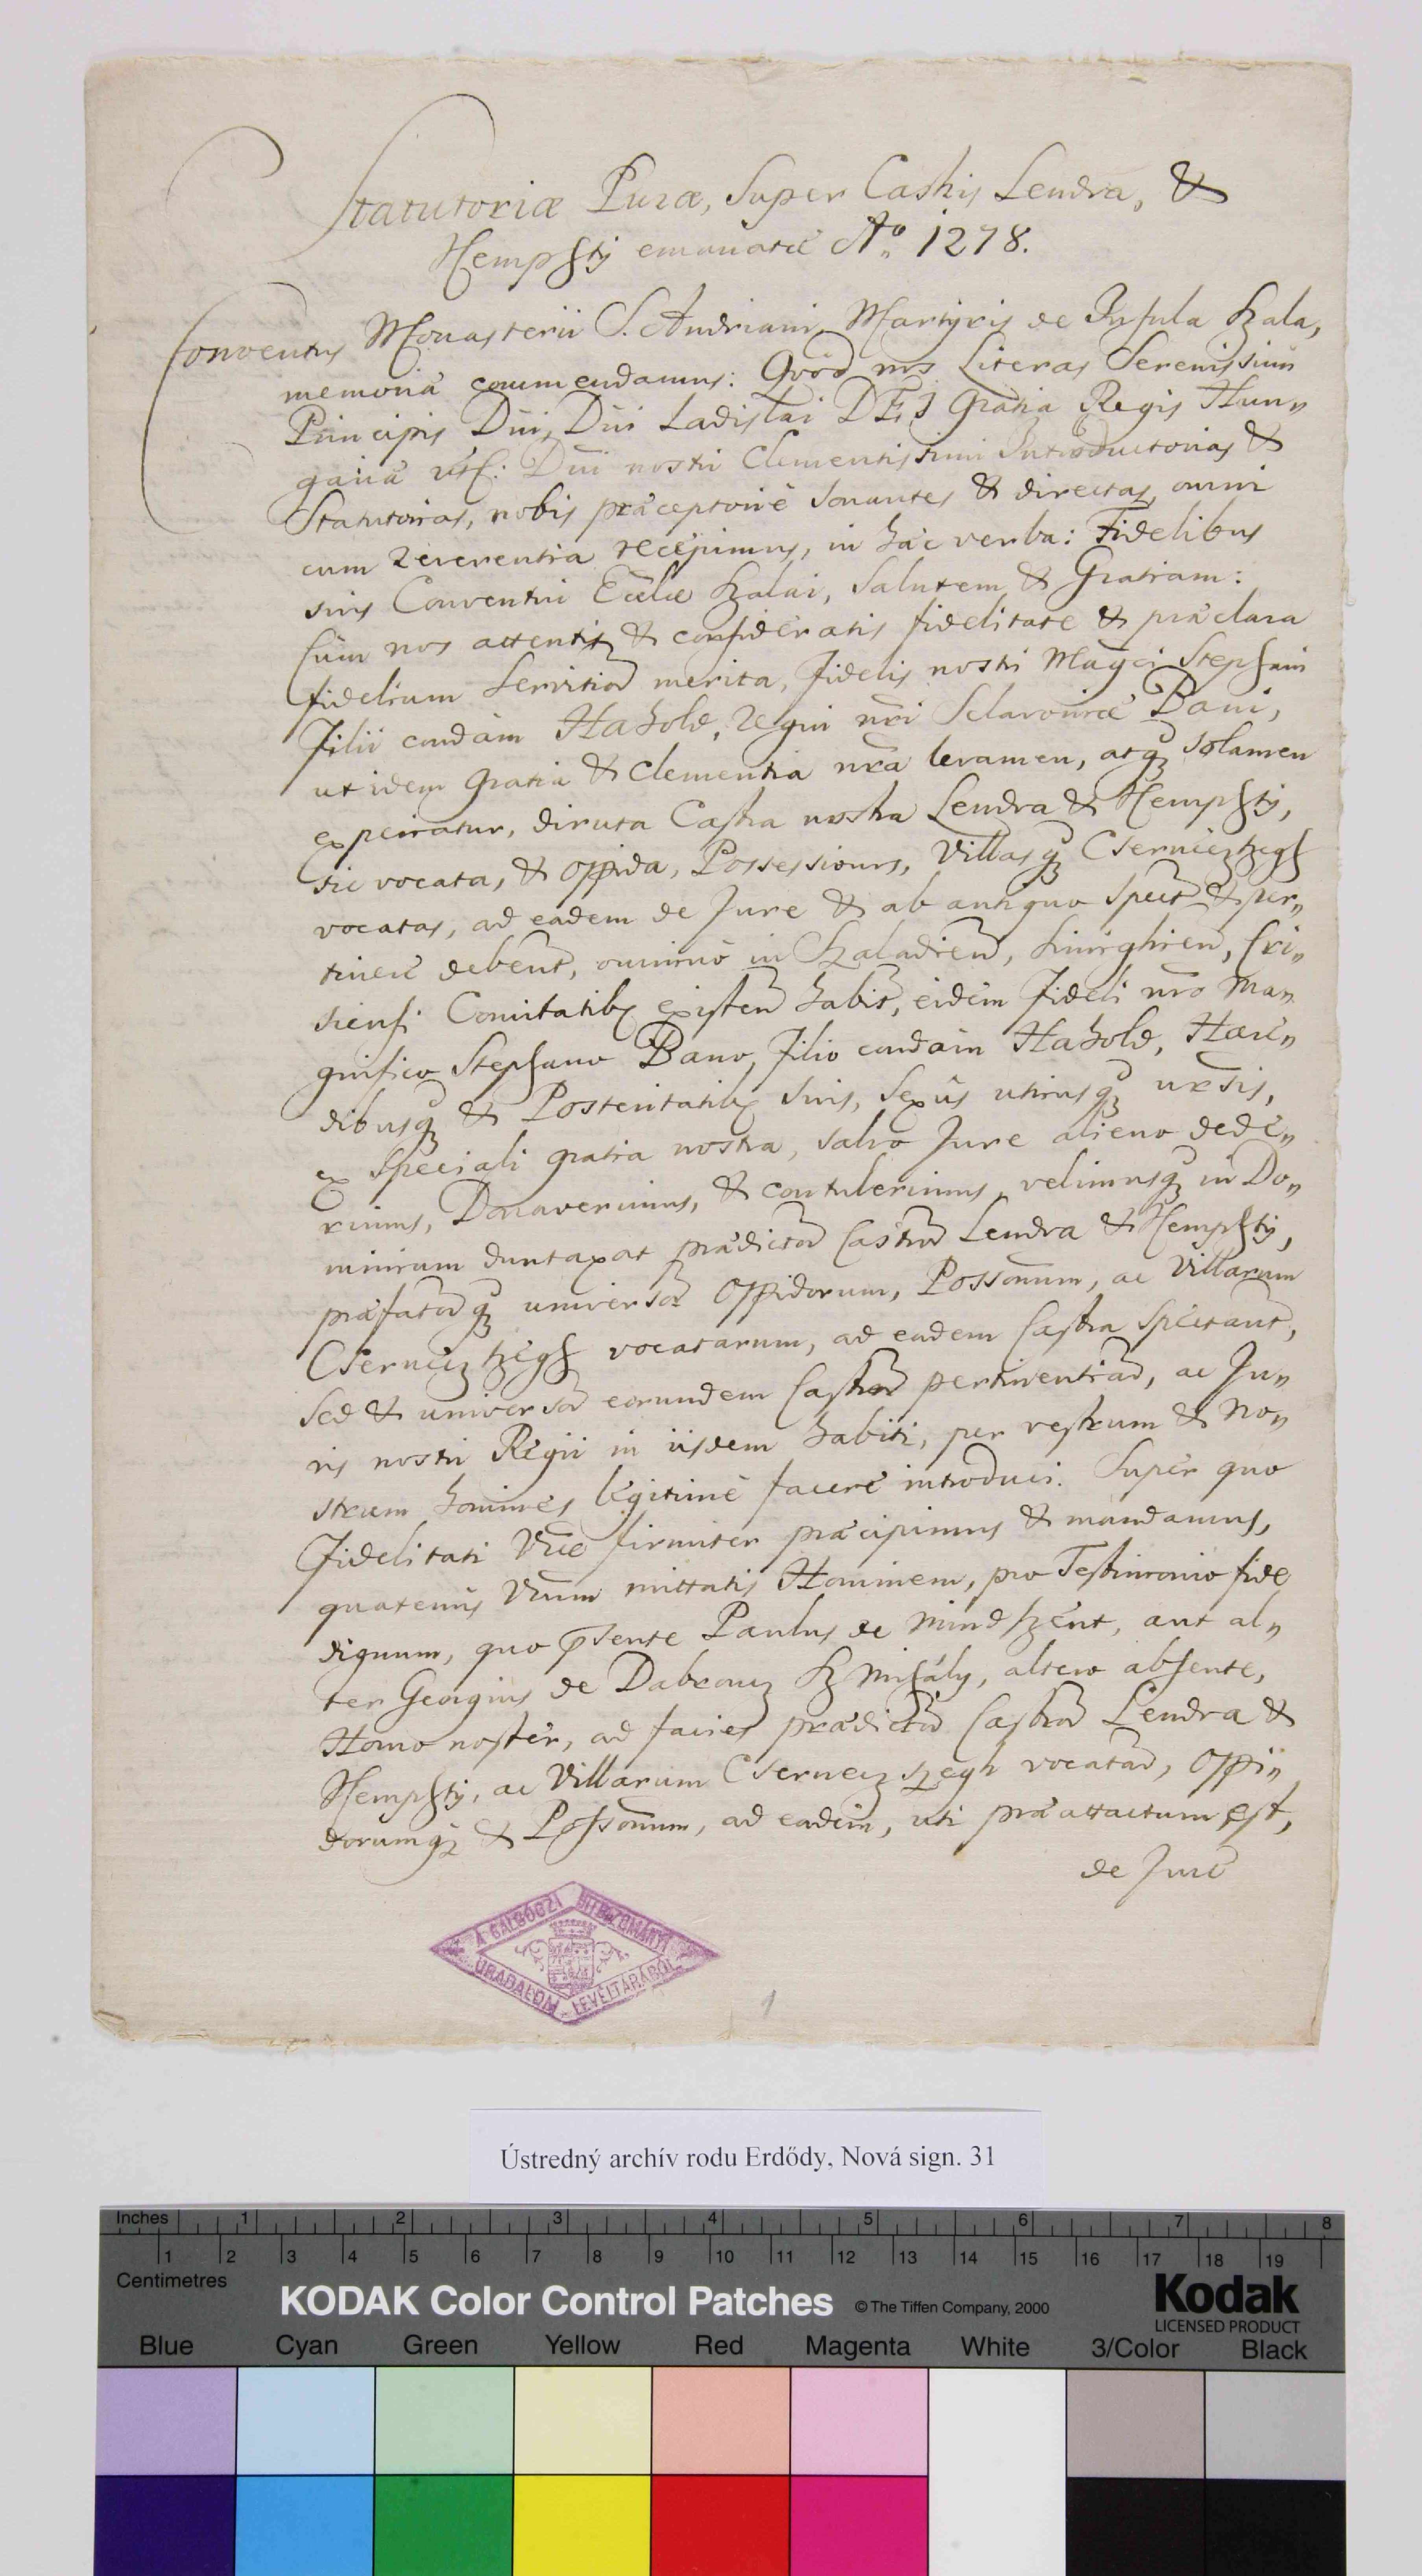 Statutoriæ Puræ, Super Castris Lendva, &
Hemphty emanatæ Aº 1278.
Conventus Monasterii S. Andriani Martyris de Insula Szala,
memoriæ commendamus: Qvod nos Literas Serenissimi
Principis Dni, Dni Ladislai DEI Gratia Regis Hun„
gariæ utf: Dni nostri Clementissimi Introductorias &
Statutorias, nobis præceptoriè sonantes & directas omni
cum reverentia recepimus, in hæc verba: Fidelibus
suis Conventui Eccliæ Szalai, Salutem & Gratiam:
Cùm nos attentis & consideratis fidelitate & præclara
fidelium Servitior̃ merita, Fidelis nostri Magci Stephani
Filii condam Hahold, Regni nr̃i Sclavoniæ Bani,
ut idem Gratia & Clementia nr̃a levamen, atq̃ solamen
experiatur, diruta Castra nostra Lendva & Hemphty,
sic vocata, & oppida, Possessiones, Villasq̃ Cserneczhegh
vocatas, ad eadem de Jure & ab antiquo spect̃ & per„
tinere debent̃, omninò in Szaladien̄, Simighien̄, Cri„
siensi Comitatib9 existen̄ habit̃, eidem Fideli nr̃o Ma„
gnifico Stephano Bano, Filio condam Hahold, Hære„
dibusq̃ & Posteritatib9 suis, Sexûs utriusq̃ ursis,
ex speciali gratia nostra, salvo Jure alieno dede„
rimus, Donaverimus, & contulerimus, velimusq̃ in Do„
minium duntaxat prædictor̃ Castror̃ Lendva & Hemphty,
præfatorq̃ universor̃ Oppidorum, Possonum, ac Villarum
Cserneczhegh vocatarum, ad eadem Castra spectant̃,
sed & universor̃ eorundem Castror̃ pertinentiar̃, ac Ju„
ris nostri Regii in iisdem habiti, per vestrum & no„
strum homines legitimè facere introduci. Super quo
Fidelitati Vr̃æ firmiter præcipimus & mandamus,
quatenus Vr̃um mittatis Hominem, pro Testimonio fide
dignum, quo p̃sente Paulus de Mindszent, aut al„
ter Georgius de Dabronz Sz Mihály, altero absente,
Homo noster, ad facies prædictor̃ Castror̃ Lendva &
Hemphty, ac Villarum Cserneczhegh vocatar̃, Oppi„
dorumq̃ & Possonum, ad eadem, uti præattactum est,
de Jure
A GALGÓCZI HITBIZOMÁNYI
URADALOM LEVÉLTÁRÁBÓL
1
Ústredný archív rodu Erdődy, Nová sign. 31
Inches 1 2 3 4 5 6 7 8
1 2 3 4 5 6 7 8 9 10 11 12 13 14 15 16 17 18 19
Centimetres
KODAK Color Control Patches © The Tiffen Company, 2000
Kodak
LICENSED PRODUCT
Blue Cyan Green Yellow Red Magenta White 3/Color Black